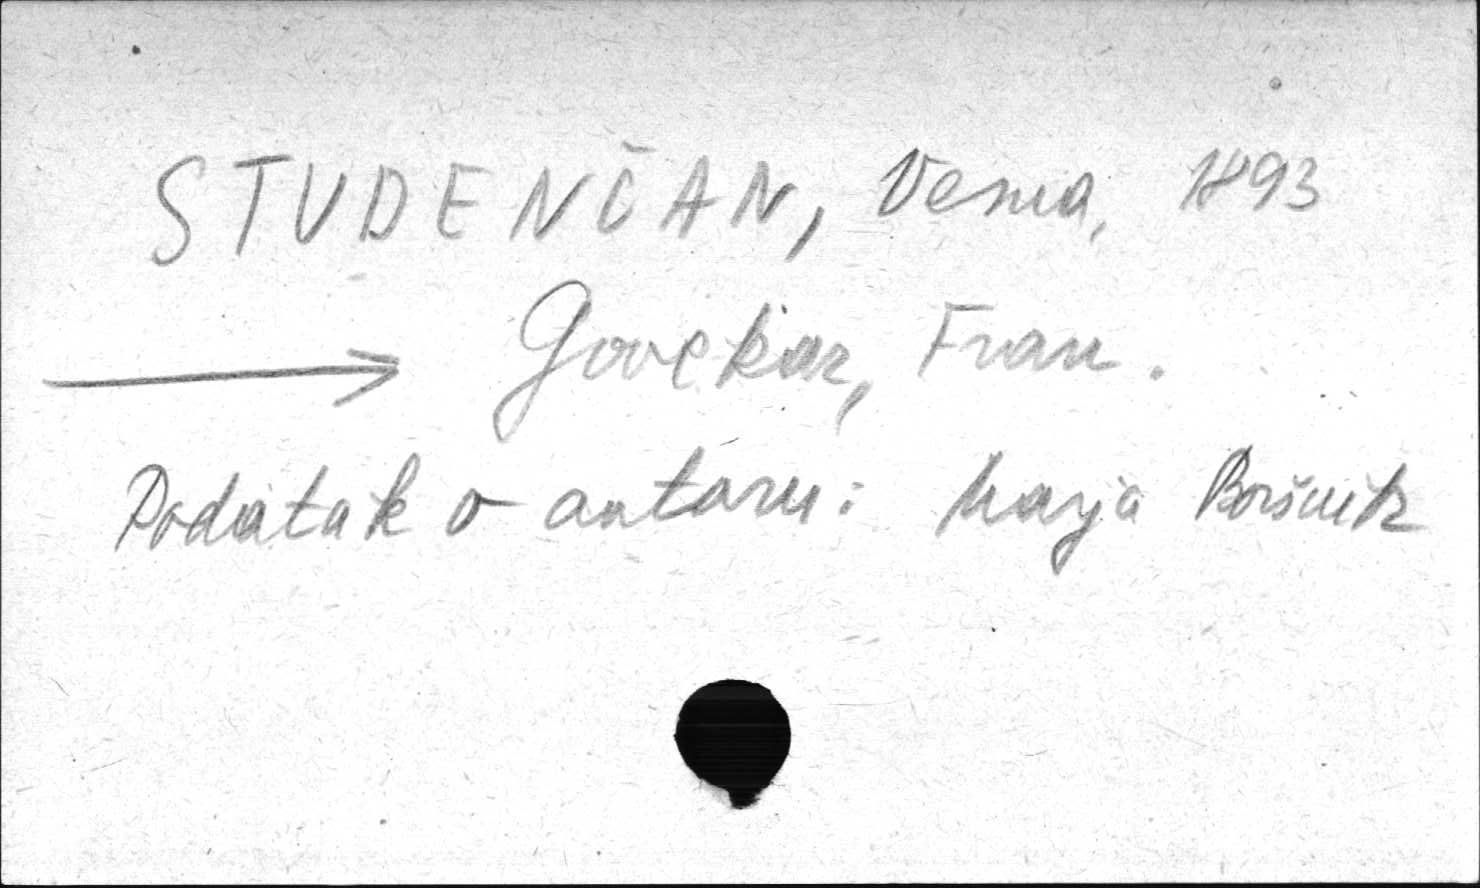 STUDENČAN, Vesna, 1893
→ Govekar, Fran.
Podatak o autaru: Marja Boršnik